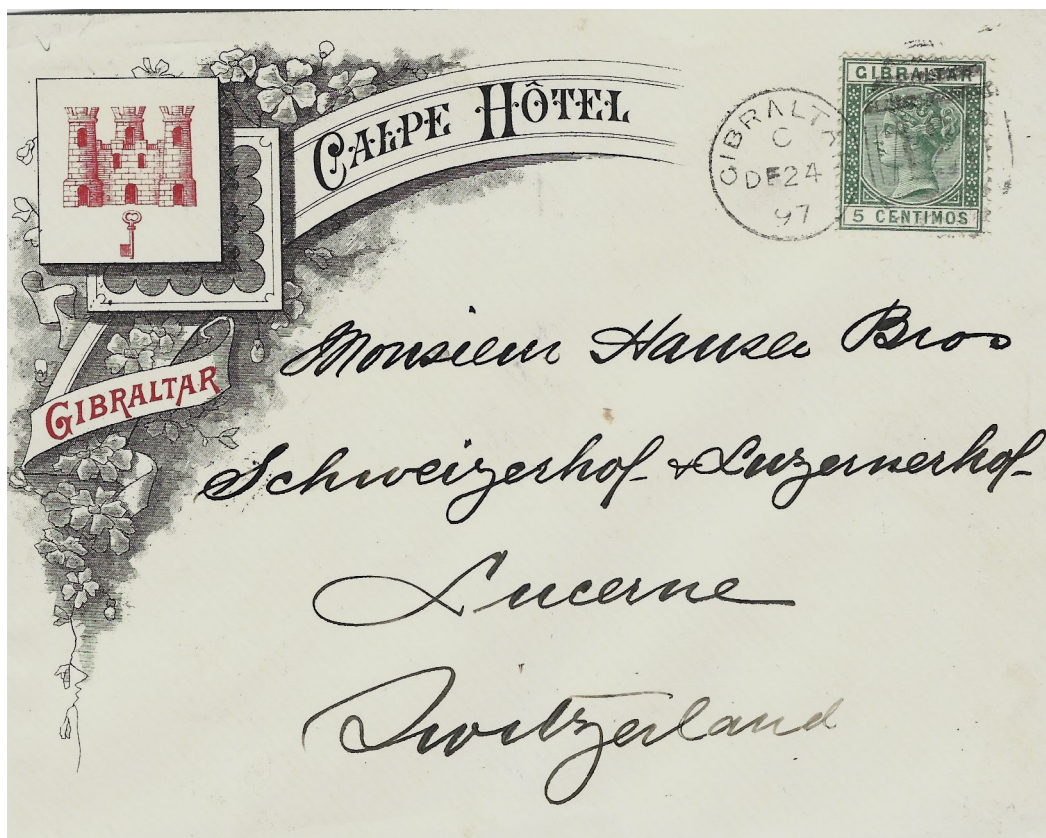 CALPE HÔTEL
GIBRALTAR
GIBRALTAR
5 CENTIMOS
GIBRALTA
C
DE24
97
Monsieur Hauser Bros
Schweizerhof & Luzernerhof
Lucerne
Switzerland